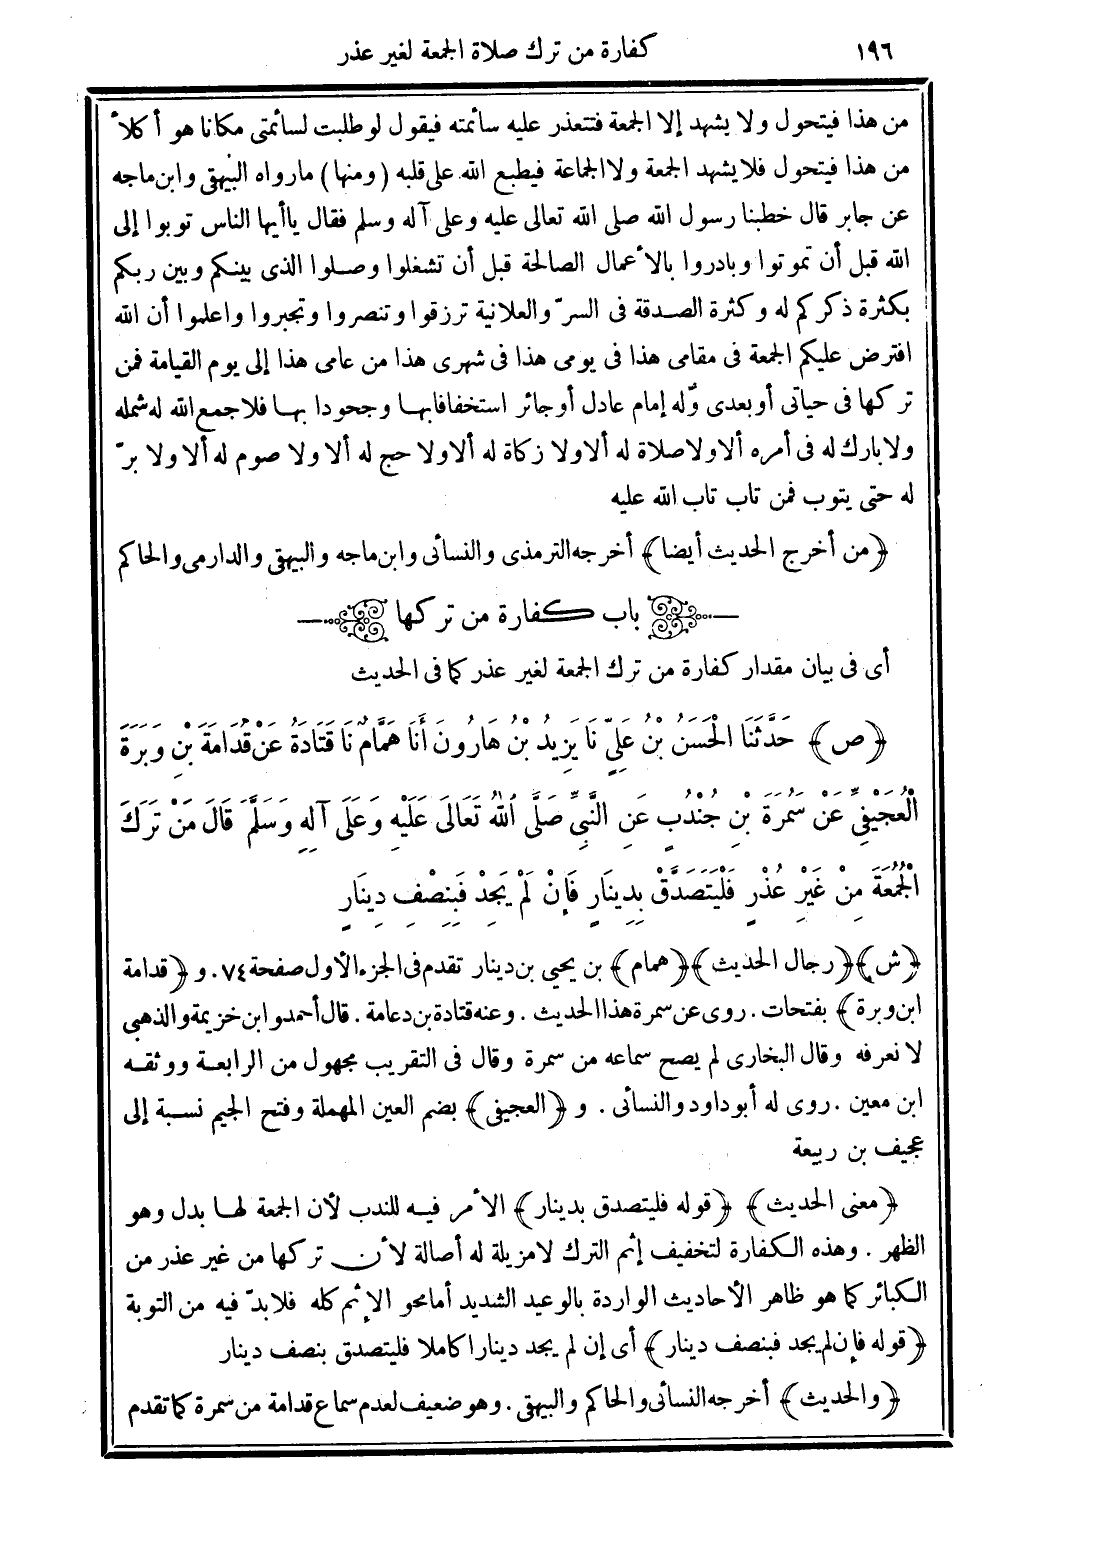 ١٩٦ كفارة من ترك صلاة الجمعة لغير عذر
من هذا فيتحول ولا يشهد إلا الجمعة فتتعذر عليه سائمته فيقول لو طلبت لسائمتى مكانا هو أكلأ
من هذا فيتحول فلا يشهد الجمعة ولا الجماعة فيطبع الله على قلبه (ومنها) مارواه البيهقى وابن ماجه
عن جابر قال خطبنا رسول الله صلى الله تعالى عليه وعلى آله وسلم فقال ياأيها الناس توبوا إلى
الله قبل أن تموتوا وبادروا بالأعمال الصالحة قبل أن تشغلوا وصلوا الذى بينكم وبين ربكم
بكثرة ذكركم له وكثرة الصدقة فى السرّ والعلانية ترزقوا وتنصروا وتجبروا واعلموا أن الله
افترض عليكم الجمعة فى مقامى هذا فى يومى هذا فى شهرى هذا من عامى هذا إلى يوم القيامة فمن
تركها فى حياتى أو بعدى وله إمام عادل أو جائر استخفافا بها وجحودا بها فلا جمع الله له شمله
ولا بارك له فى أمره ألا ولا صلاة له ألا ولا زكاة له ألا ولا حج له ألا ولا صوم له ألا ولا برّ
له حتى يتوب فمن تاب تاب الله عليه
﴿من أخرج الحديث أيضا﴾ أخرجه الترمذى والنسائى وابن ماجه والبيهقى والدارمى والحاكم
باب كفارة من تركها
أى فى بيان مقدار كفارة من ترك الجمعة لغير عذر كما فى الحديث
﴿ص﴾ حَدَّثَنَا الْحَسَنُ بْنُ عَلِيٍّ نَا يَزِيدُ بْنُ هَارُونَ أَنَا هَمَّامٌ نَا قَتَادَةُ عَنْ قُدَامَةَ بْنِ وَبَرَةَ
الْعُجَيْفِيِّ عَنْ سَمُرَةَ بْنِ جُنْدُبٍ عَنِ النَّبِيِّ صَلَّى اللهُ تَعَالَى عَلَيْهِ وَعَلَى آلِهِ وَسَلَّمَ قَالَ مَنْ تَرَكَ
الْجُمُعَةَ مِنْ غَيْرِ عُذْرٍ فَلْيَتَصَدَّقْ بِدِينَارٍ فَإِنْ لَمْ يَجِدْ فَبِنِصْفِ دِينَارٍ
﴿ش﴾ ﴿رجال الحديث﴾ ﴿همام﴾ بن يحيى بن دينار تقدم فى الجزء الأول صفحة ٧٤ . و ﴿قدامة
ابن وبرة﴾ بفتحات . روى عن سمرة هذا الحديث . وعنه قتادة بن دعامة . قال أحمد وابن خزيمة والذهبى
لا نعرفه وقال البخارى لم يصح سماعه من سمرة وقال فى التقريب مجهول من الرابعة ووثقه
ابن معين . روى له أبو داود والنسائى . و ﴿العجيفى﴾ بضم العين المهملة وفتح الجيم نسبة إلى
عجيف بن ربيعة
﴿معنى الحديث﴾ ﴿قوله فليتصدق بدينار﴾ الأمر فيه للندب لأن الجمعة لها بدل وهو
الظهر . وهذه الكفارة لتخفيف إثم الترك لا مزيلة له أصالة لأن تركها من غير عذر من
الكبائر كما هو ظاهر الأحاديث الواردة بالوعيد الشديد أما محو الإثم كله فلا بدّ فيه من التوبة
﴿قوله فإن لم يجد فبنصف دينار﴾ أى إن لم يجد دينارا كاملا فليتصدق بنصف دينار
﴿والحديث﴾ أخرجه النسائى والحاكم والبيهقى . وهو ضعيف لعدم سماع قدامة من سمرة كما تقدم